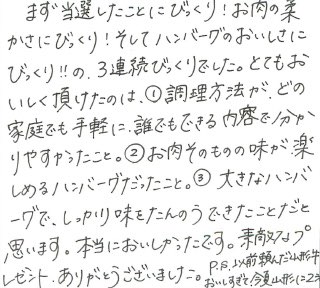 まず当選したことにびっくり!お肉の柔
かさにびっくり!そしてハンバーグのおいしさに
びっくり!!の、3連続びっくりでした。とてもお
いしく頂けたのは、①調理方法が、どの
家庭でも手軽に、誰でもできる内容で分か
りやすかったこと。②お肉そのものの味が楽
しめるハンバーグだったこと。③大きなハンバ
ーグで、しっかり味をたんのうできたことだと
思います。本当においしかったです。素敵なプ
レゼント、ありがとうございました。
P.S.以前頼んだ山形牛
おいしすぎて今夏山形に2泊